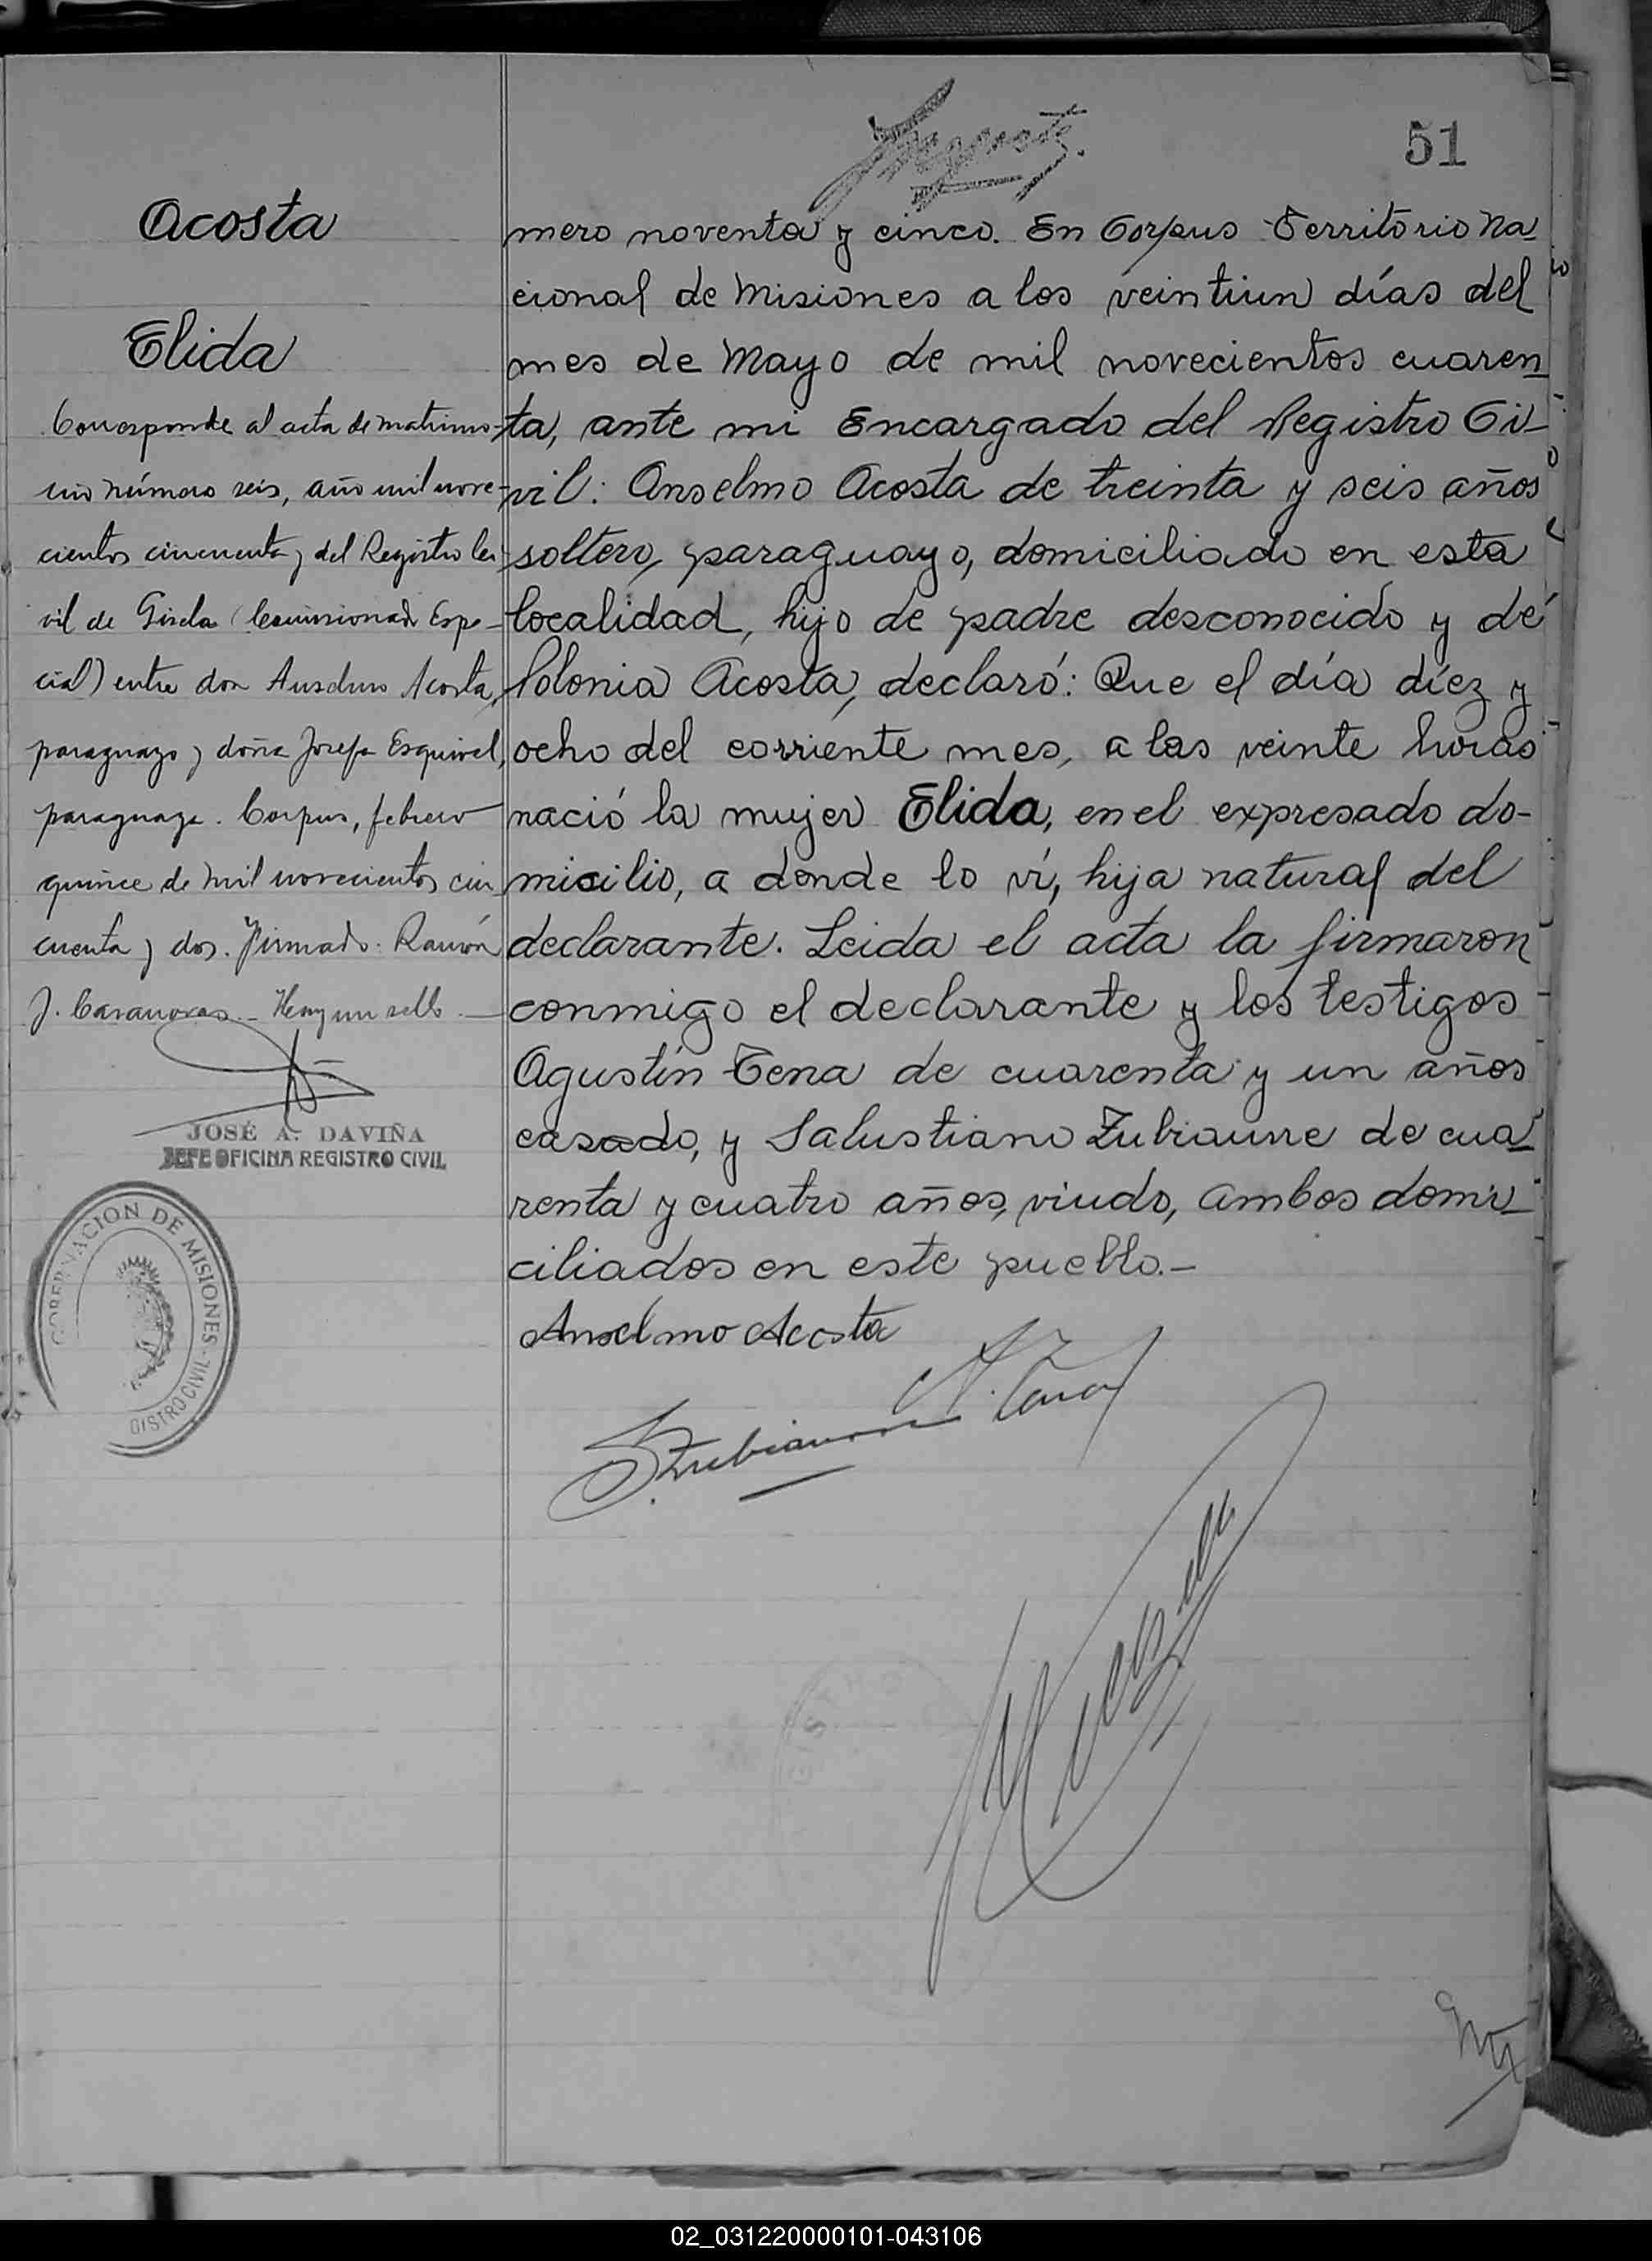 51
Acosta
Elida
Corresponde al acta de matrimo-
nio número seis, año mil nove-
cientos cincuenta y del Registro Ci-
vil de Gisela (Comisionado Espe-
cial) entre don Anselmo Acosta,
paraguayo y doña Josefa Esquivel,
paraguaya. Corpus, febrero
quince de mil novecientos cin
cuenta y dos. Firmado: Ramón
J. Casanovas - Hay un sello. -
JOSÉ A. DAVIÑA
JEFE OFICINA REGISTRO CIVIL
GOBERNACION DE MISIONES
GISTRO CIVIL
mero noventa y cinco. En Corpus Territorio Na
cional de Misiones a los veintiun días del
mes de Mayo de mil novecientos cuaren
ta, ante mi Encargado del Registro Ci-
vil: Anselmo Acosta de treinta y seis años
soltero, paraguayo, domiciliado en esta
localidad, hijo de padre desconocido y de
Polonia Acosta, declaró: Que el día díez y
ocho del corriente mes, a las veinte horas
nació la mujer Elida, en el expresado do-
micilio, a donde lo ví, hija natural del
declarante. Leida el acta la firmaron
conmigo el declarante y los testigos
Agustín Tena de cuarenta y un años
casado, y Salustiano Zubiaurre de cua
renta y cuatro años, viudo, ambos domi
ciliados en este pueblo.-
Anselmo Acosta
A. Tena
S. Zubiaurre
02_031220000101-043106